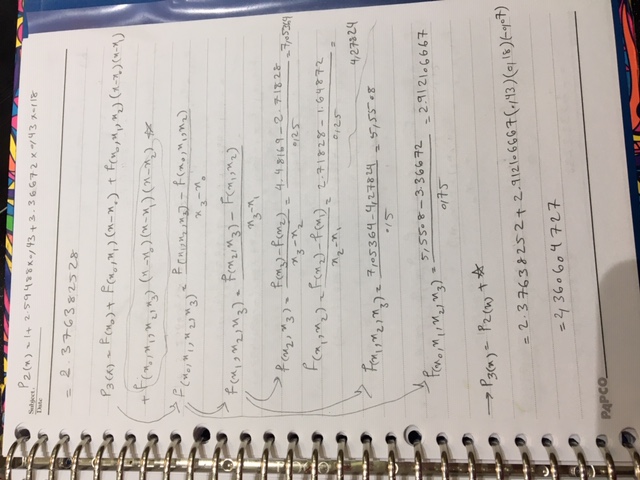 P₂(x) = 1 + 2.59488 x 0/43 + 3.36672 x 0/43 x 0/18
Subject:
Date
= 2.376382528
P₃(x) = f(x₀) + f(x₀,x₁)(x-x₀) + f(x₀,x₁,x₂)(x-x₀)(x-x₁)
+ f(x₀,x₁,x₂,x₃)(x-x₀)(x-x₁)(x-x₂) ☆
f(x₀,x₁,x₂,x₃) = f(x₁,x₂,x₃) - f(x₀,x₁,x₂) / x₃-x₀
f(x₁,x₂,x₃) = f(x₂,x₃) - f(x₁,x₂) / x₃-x₁
f(x₂,x₃) = f(x₃)-f(x₂) / x₃-x₂ = 4.48169 - 2.71828 / 0,25 = 7,05364
f(x₁,x₂) = f(x₂)-f(x₁) / x₂-x₁ = 2.71828 - 1.64872 / 0,25 =
4,27824
f(x₁,x₂,x₃) = 7,05364 - 4,27824 / 0,5 = 5,5508
f(x₀,x₁,x₂,x₃) = 5,5508 - 3.36672 / 0,75 = 2.912106667
→ P₃(x) = P₂(x) + ☆
= 2.37638252 + 2.912106667(0,43)(0,18)(-0,07)
= 2,360604727
PAPCO